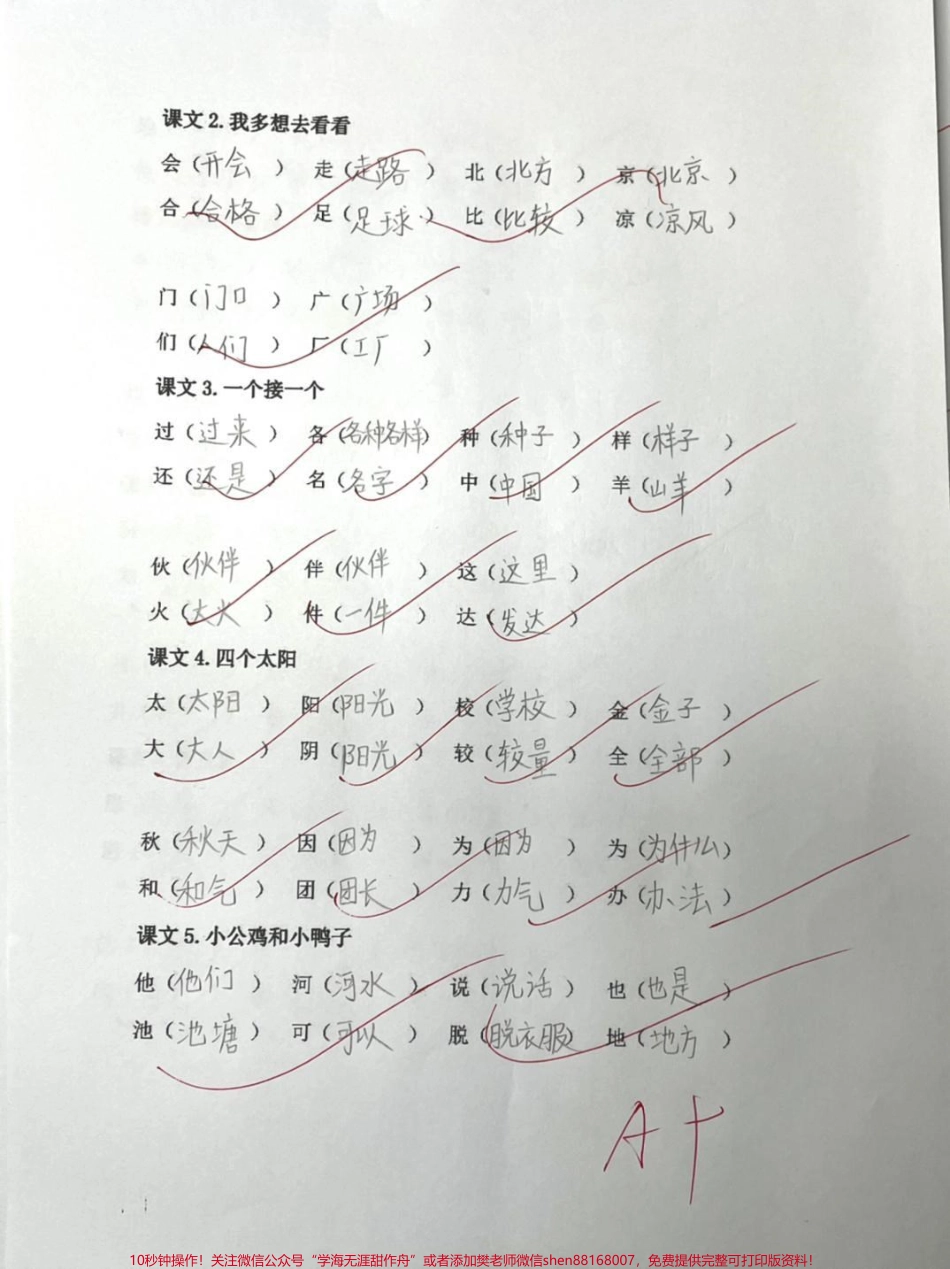 课文2.我多想去看看
会（开会） 走（走路） 北（北方） 京（北京）
合（合格） 足（足球） 比（比较） 凉（凉风）
门（门口） 广（广场）
们（人们） 厂（工厂）
课文3.一个接一个
过（过来） 各（各种各样） 种（种子） 样（样子）
还（还是） 名（名字） 中（中国） 羊（山羊）
伙（伙伴） 伴（伙伴） 这（这里）
火（大火） 件（一件） 达（发达）
课文4.四个太阳
太（太阳） 阳（阳光） 校（学校） 金（金子）
大（大人） 阴（阳光） 较（较量） 全（全部）
秋（秋天） 因（因为） 为（因为） 为（为什么）
和（和气） 团（团长） 力（力气） 办（办法）
课文5.小公鸡和小鸭子
他（他们） 河（河水） 说（说话） 也（也是）
池（池塘） 可（可以） 脱（脱衣服） 地（地方）
A+
10秒钟操作！关注微信公众号“学海无涯甜作舟”或者添加樊老师微信shen88168007，免费提供完整可打印版资料！